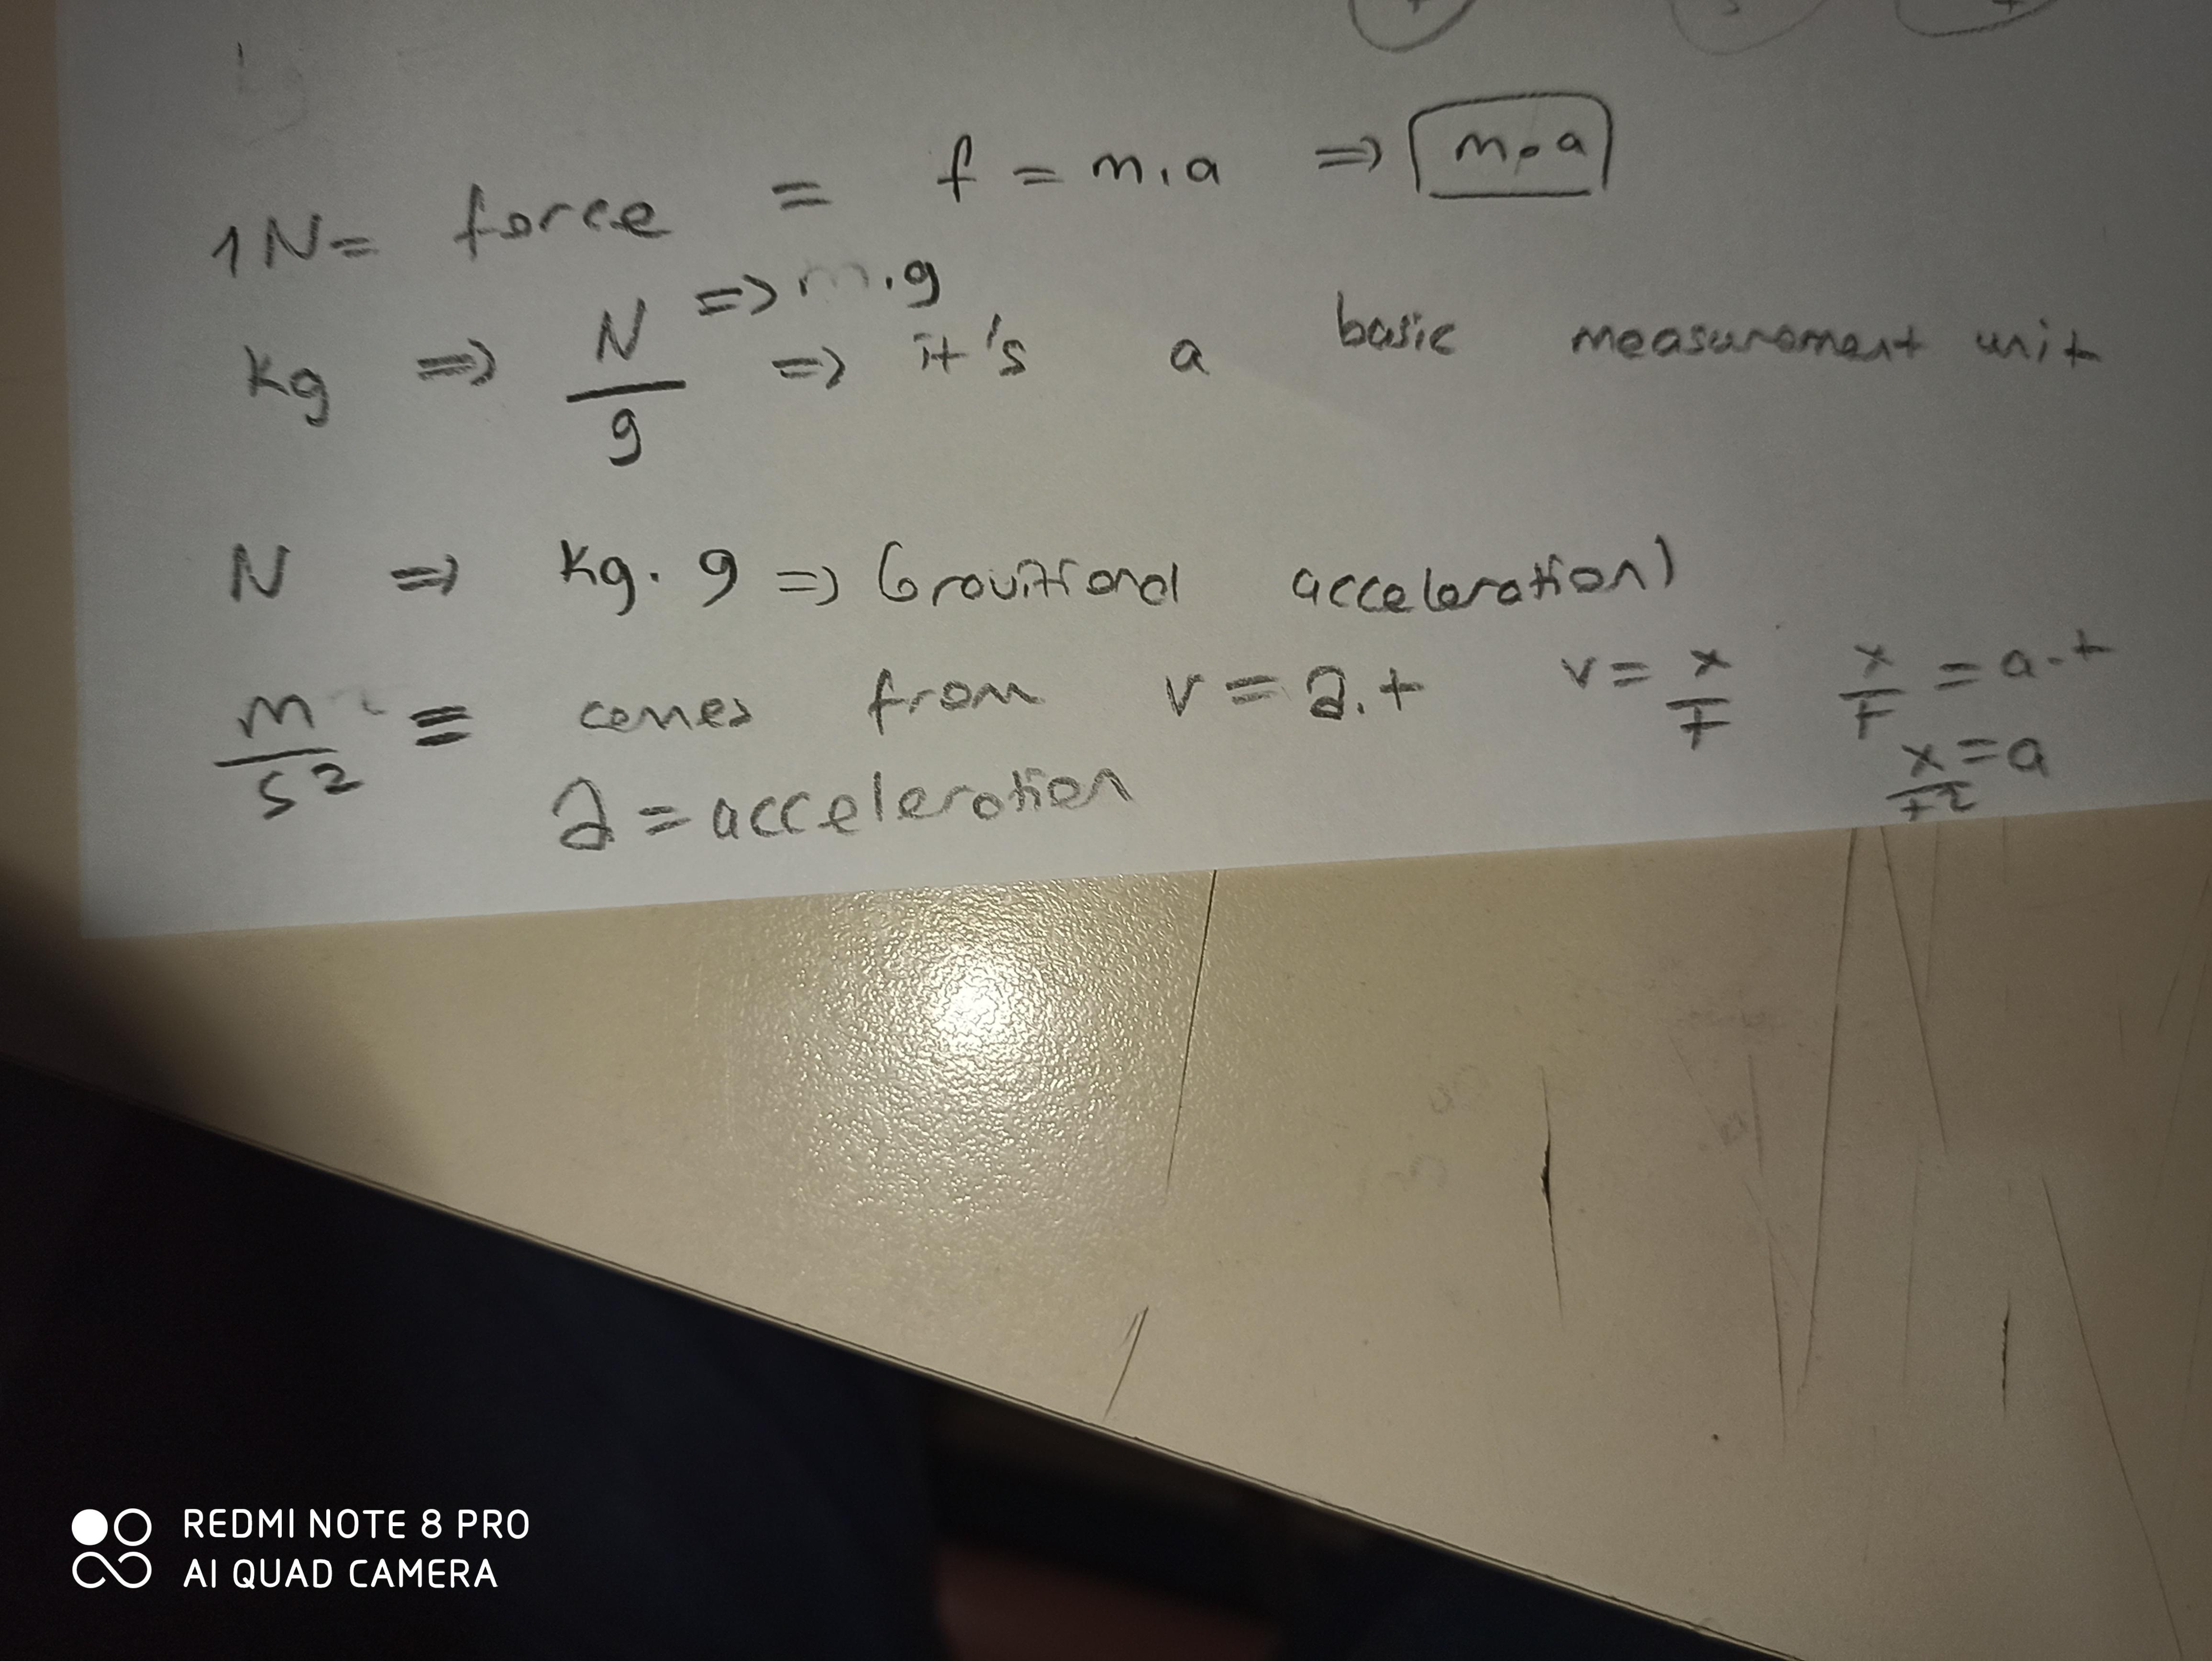 1N = force = f = m.a => m.a
=> m.g
kg => N/g => it's a basic measurement unit
N => kg.g => Grovitional acceleration)
m/s2 = comes from v = a.t v = x/t x/t = a.t
a = acceleration x/t2 = a
REDMI NOTE 8 PRO
AI QUAD CAMERA